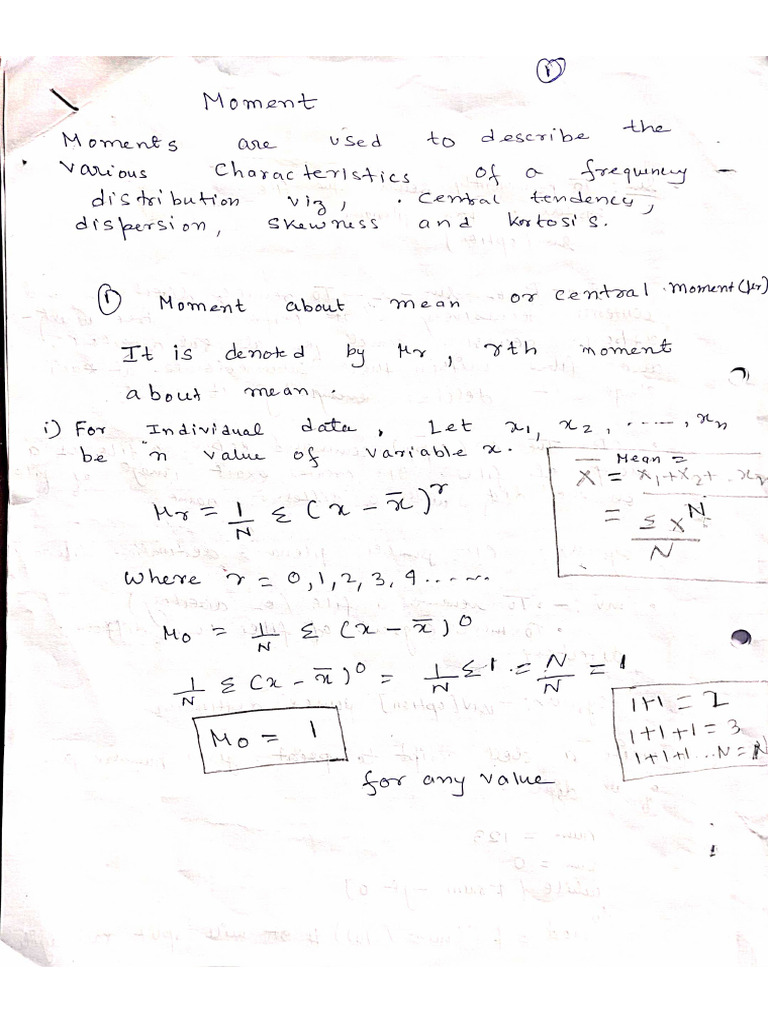 1
Moment
Moments are used to describe the
various characteristics of a frequency
distribution viz, central tendency,
dispersion, skewness and kortosis.
① Moment about mean or central moment (μr)
It is denoted by μr, rth moment
about mean.
i) For Individual data, Let x₁, x₂, ....., xₙ
be n value of variable x.
Mean =
X̄ = x₁+x₂+ . xₙ
N
= Σx
N
μr = 1/N Σ (x - x̄)^r
where r = 0, 1, 2, 3, 4 ......
μ0 = 1/N Σ (x - x̄)⁰
1/N Σ (x - x̄)⁰ = 1/N Σ1 = N/N = 1
μ0 = 1
1+1 = 2
1+1+1 = 3
1+1+1 ...N = N
for any value